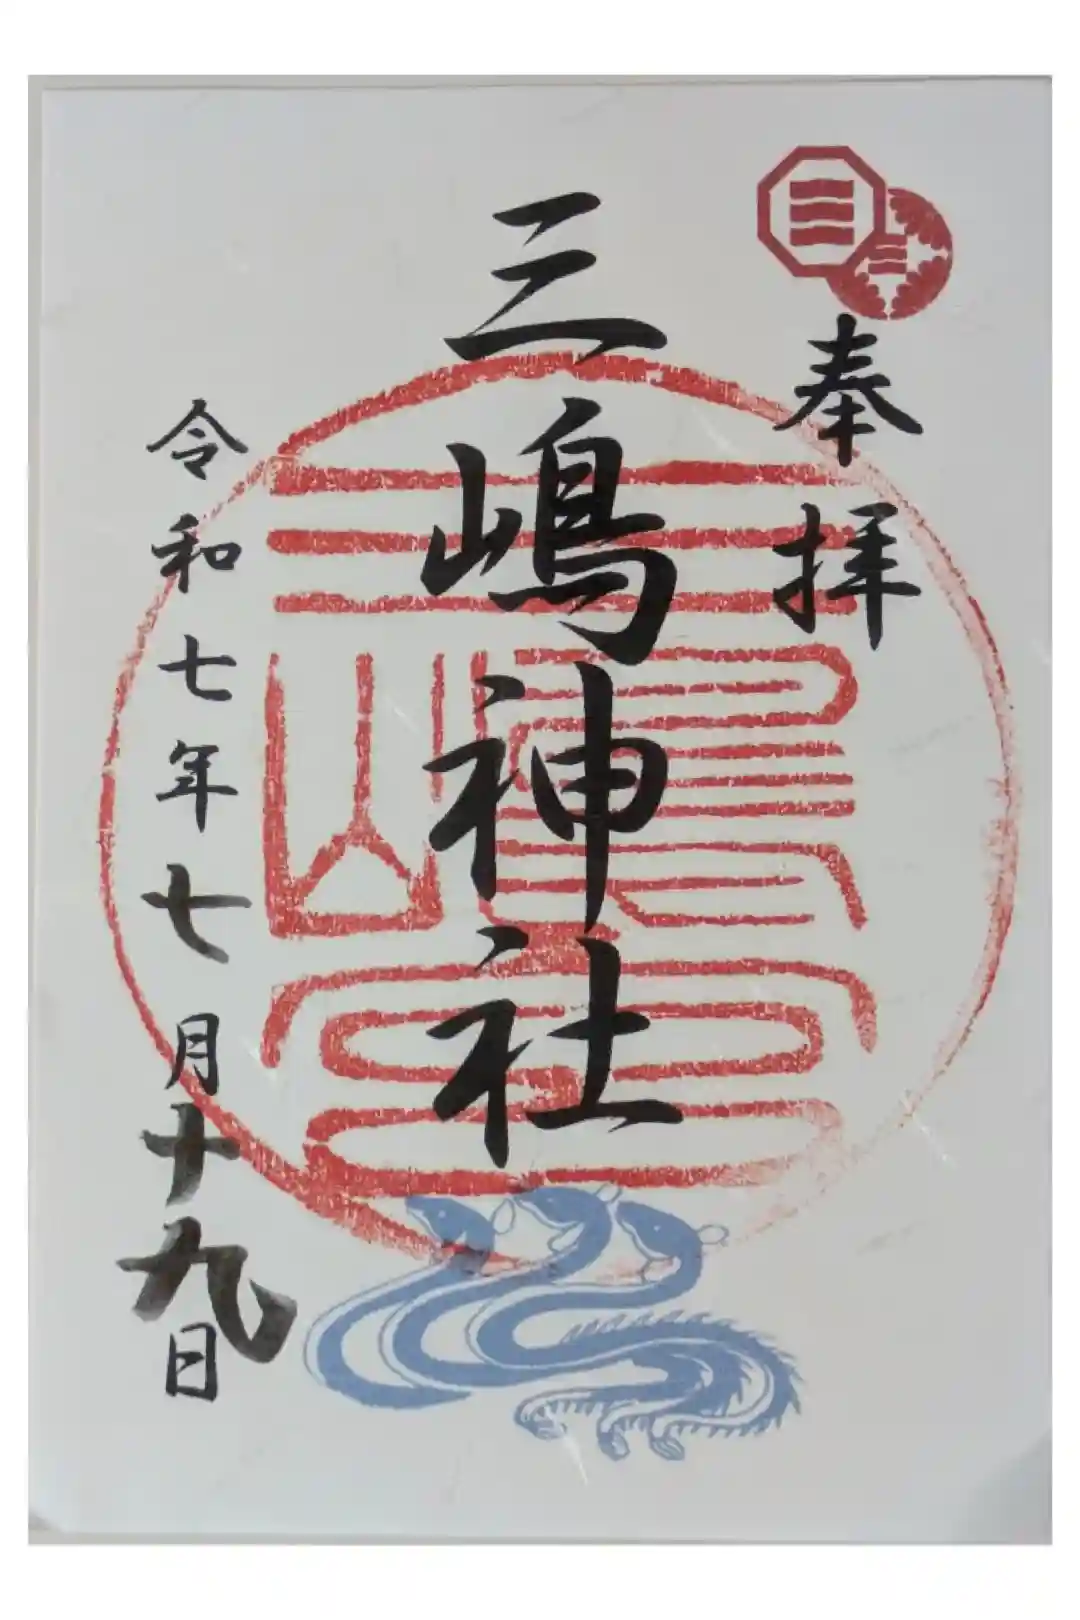 奉拝
三嶋神社
令和七年七月十九日
三嶋神社